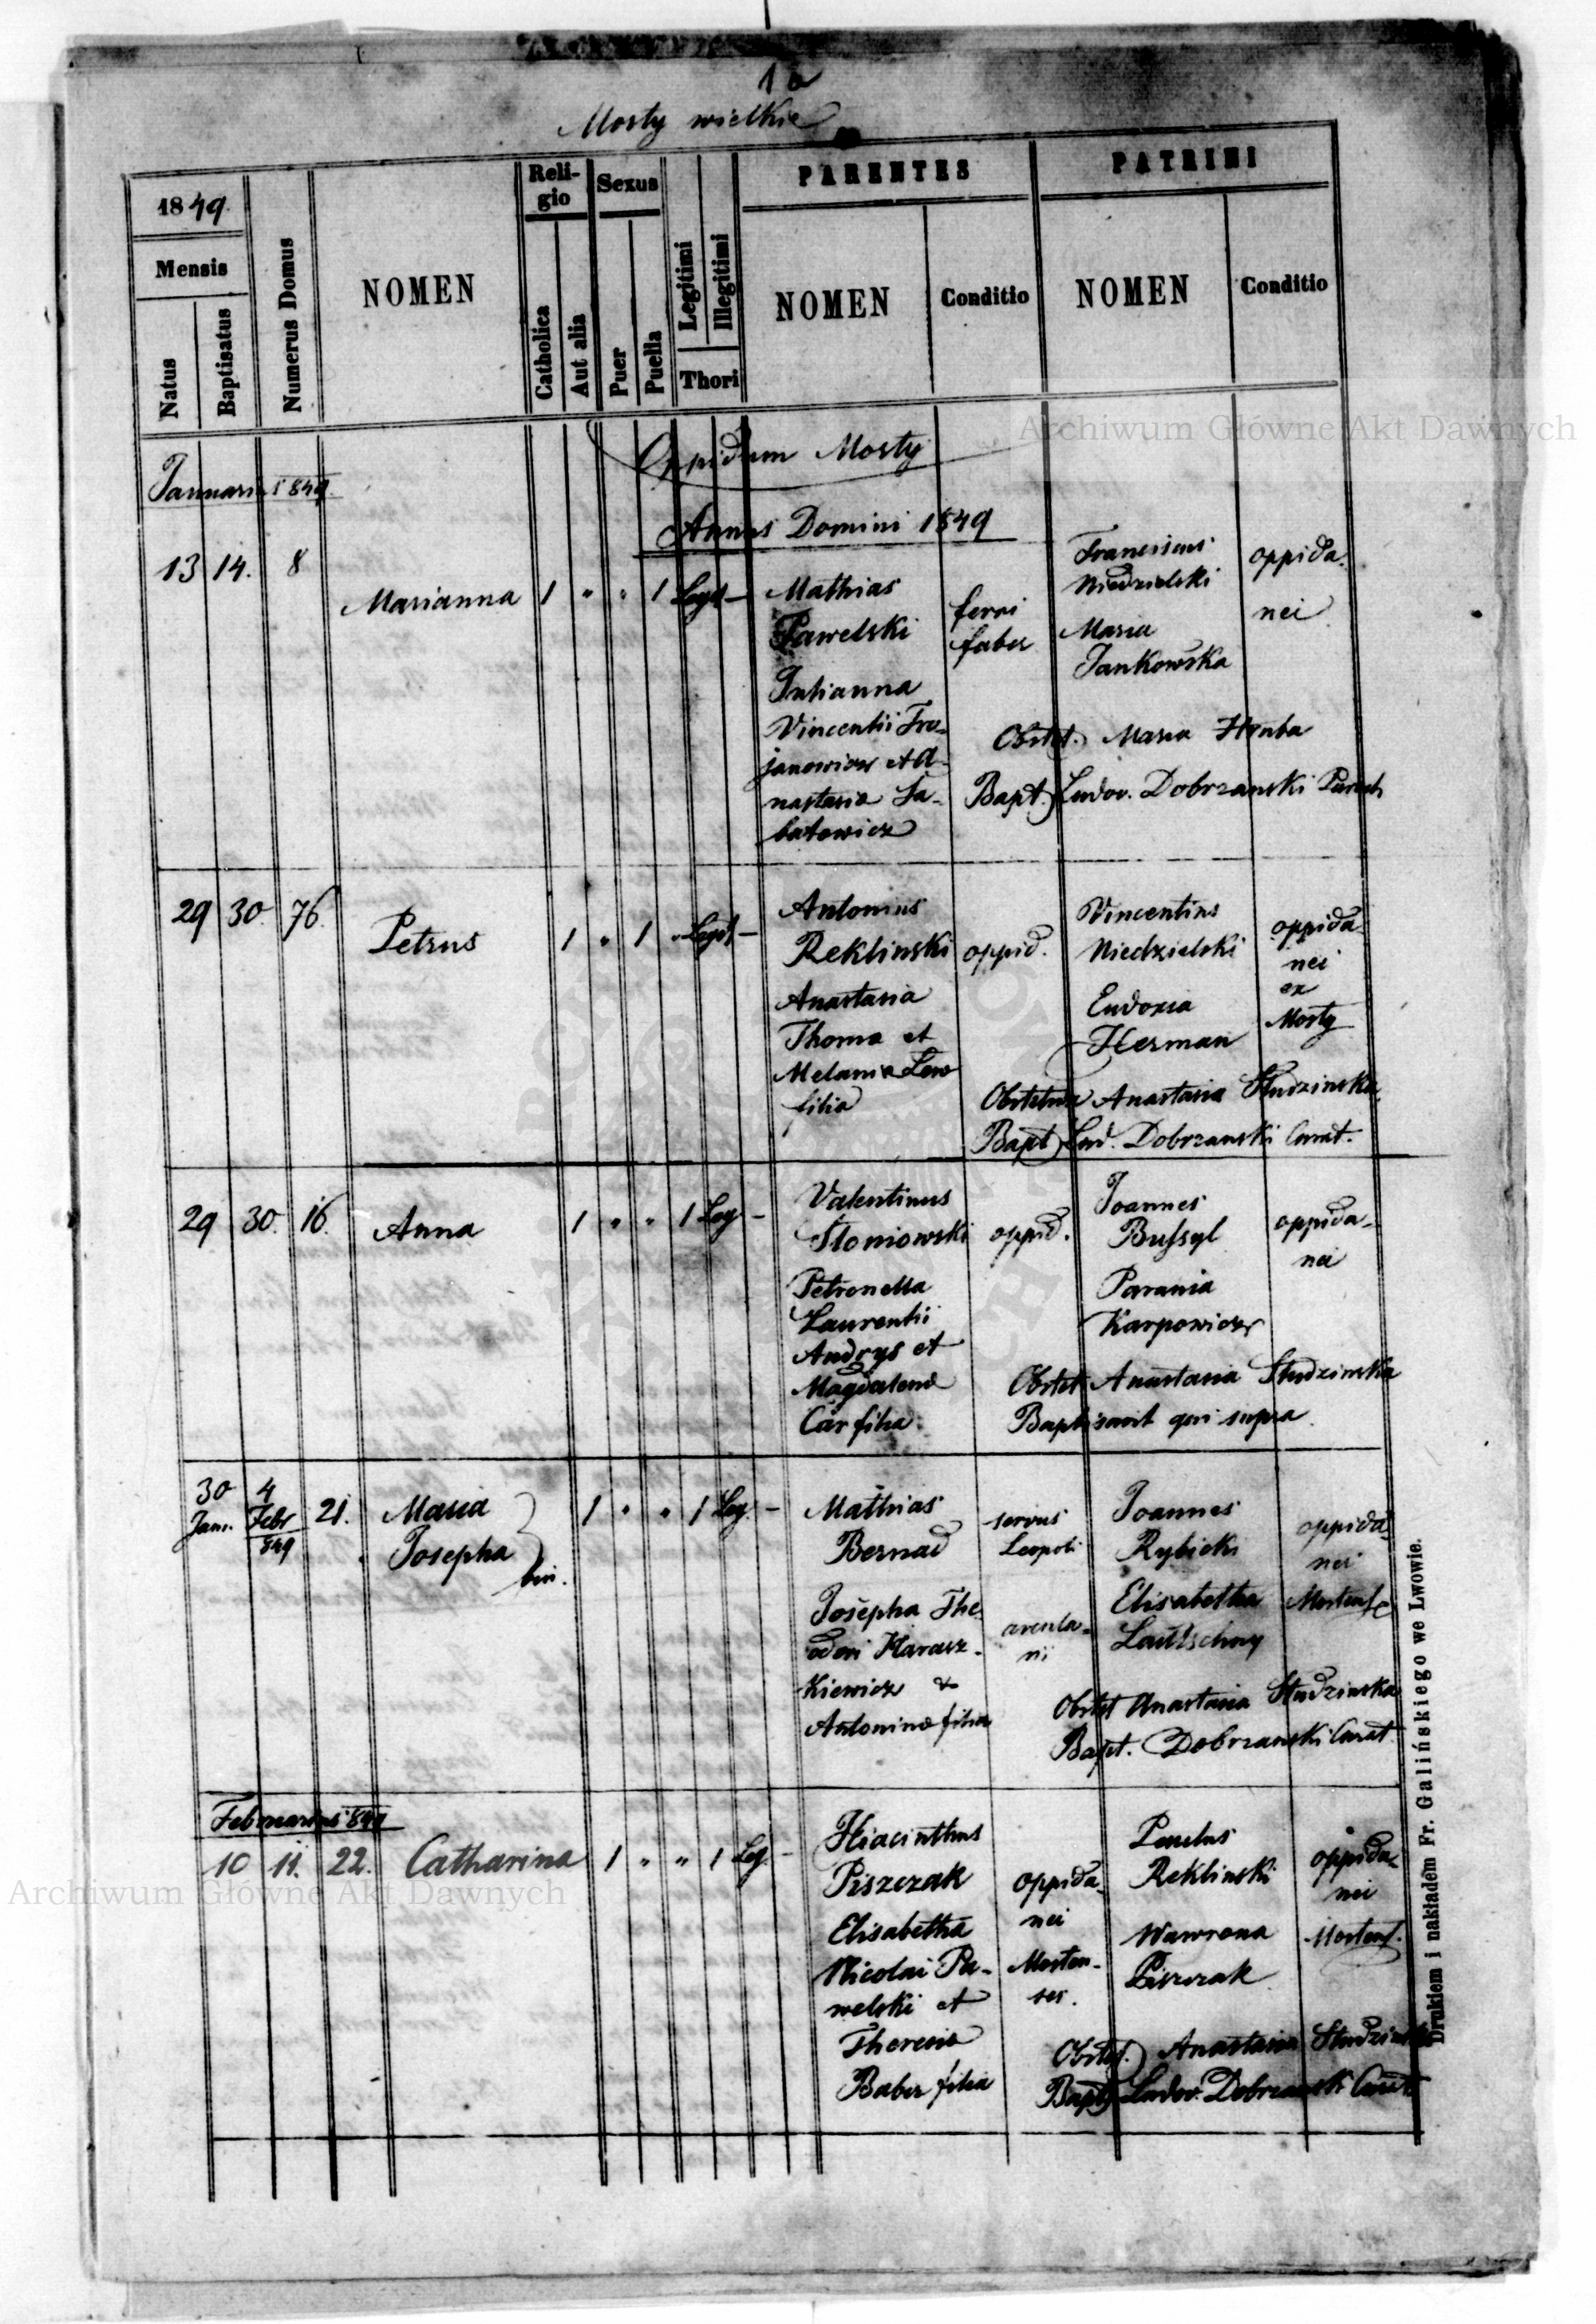 1a
Mosty wielkie
1849.
Mensis
Natus
Baptisatus
Numerus Domus
NOMEN
Reli-
gio
Catholica
Aut alia
Sexus
Puer
Puella
Legitimi
Illegitimi
Thori
PARENTES
NOMEN
Conditio
PATRINI
NOMEN
Conditio
Archiwum Główne Akt Dawnych
Oppidum Mosty
Januarius 849.
Annus Domini 1849
13 14. 8
Marianna 1 " " 1 Legit –
Mathias
Pawelski
Julianna
Vincentii Tro-
janowicz et A-
nastasia Sa-
batowicz
ferri
faber
Franciscus
Niedzielski
Maria
Jankowska
oppida-
nei
Obstet. Maria Hruba
Bapt. Ludov. Dobrzanski Paroch
29 30. 76.
Petrus 1 " 1 " Legit –
Antonius
Reklinski
Anastasia
Thoma et
Melania Lew
filia
oppid.
Vincentius
Niedzielski
Eudoxia
Herman
oppida
nei
ex
Mosty
Obstetrix Anastasia Studzinska
Bapt Lud. Dobrzanski Curat.
29 30. 16.
Anna 1 " " 1 Leg –
Valentinus
Słoniowski
Petronella
Laurentii
Andrys et
Magdalena
Car filia
oppid.
Joannes
Bussyl
Parania
Karpowicz
oppida-
nei
Obstet Anastasia Studzinska
Baptisavit qui supra
30 4
Jan. Febr 21.
849
Maria
Josepha
bin.
1 " " 1 Leg. –
Mathias
Bernad
Josepha The
odori Harasz-
kiewicz &
Antonina filia
servus
Leopoli
arenda-
rii
Joannes
Rybicki
Elisabetha
Lautschny
oppida-
nei
Mostens
Obstet Anastasia Studzinska
Bapt. Dobrzanski Curat
Februarius 849
10 11. 22. Catharina 1 " " 1 Leg. –
Hiacinthus
Piszczak
Elisabetha
Nicolai Pa-
welski et
Theresia
Baber filia
oppida-
nei
Mosten-
ses.
Paulus
Reklinski
Wawrona
Piszczak
oppida-
nei
Mostens.
Obstet. Anastasia Studzinska
Bapt Ludov. Dobrzanski Curat
Archiwum Główne Akt Dawnych
Drukiem i nakładem Fr. Galińskiego we Lwowie.